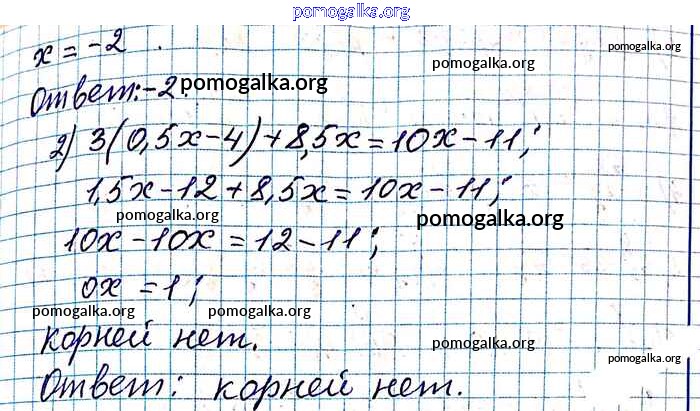 pomogalka.org
x = -2 .
pomogalka.org
pomogalka.org
Ответ: -2. pomogalka.org
2) 3(0,5x-4)+8,5x=10x-11;
1,5x-12+8,5x=10x-11;
pomogalka.org
pomogalka.org
10x-10x=12-11;
0x =1;
pomogalka.org
pomogalka.org
корней нет.
pomogalka.org
pomogalka.org
Ответ: корней нет.